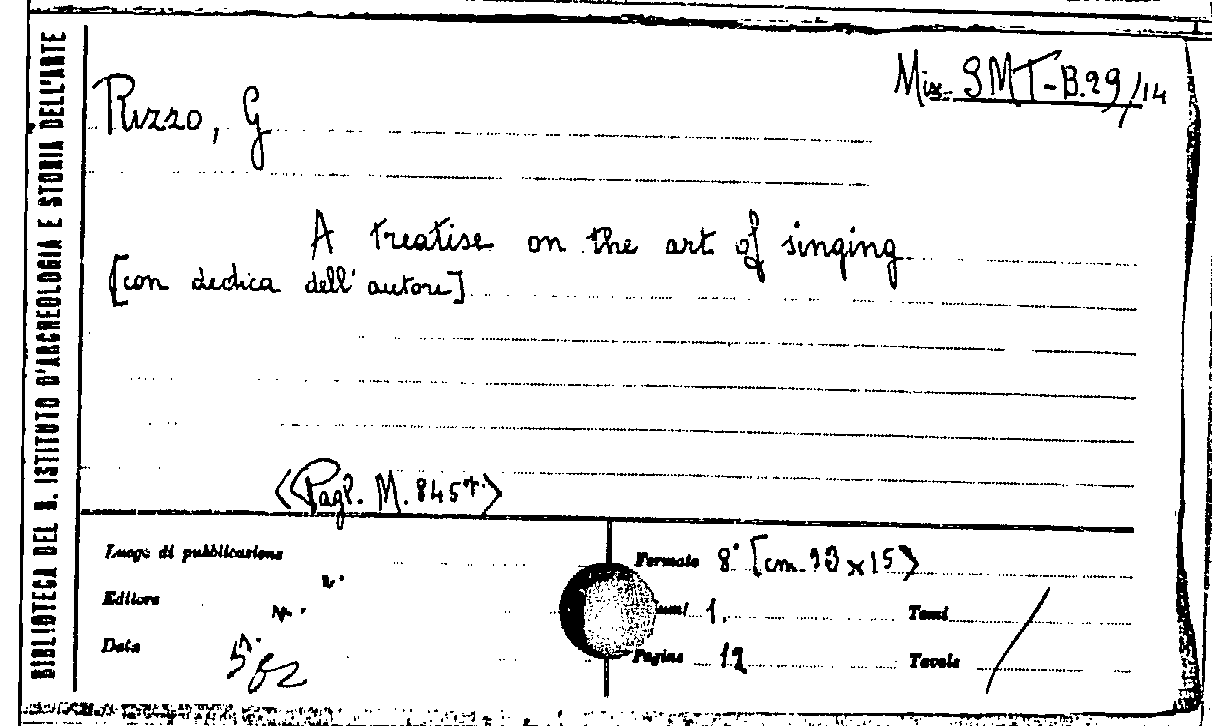 BIBLIOTECA DEL R. ISTITUTO D'ARCHEOLOGIA E STORIA DELL'ARTE
Misc. SMT-B.29/14
Rizzo, G
A treatise on the art of singing
[con dedica dell'autore]
<Pagl. M. 845>
Luogo di pubblicazione
Formato 8° [cm. x15]
Editore
1. Tomi
Data
Pagine 12 Tavole /